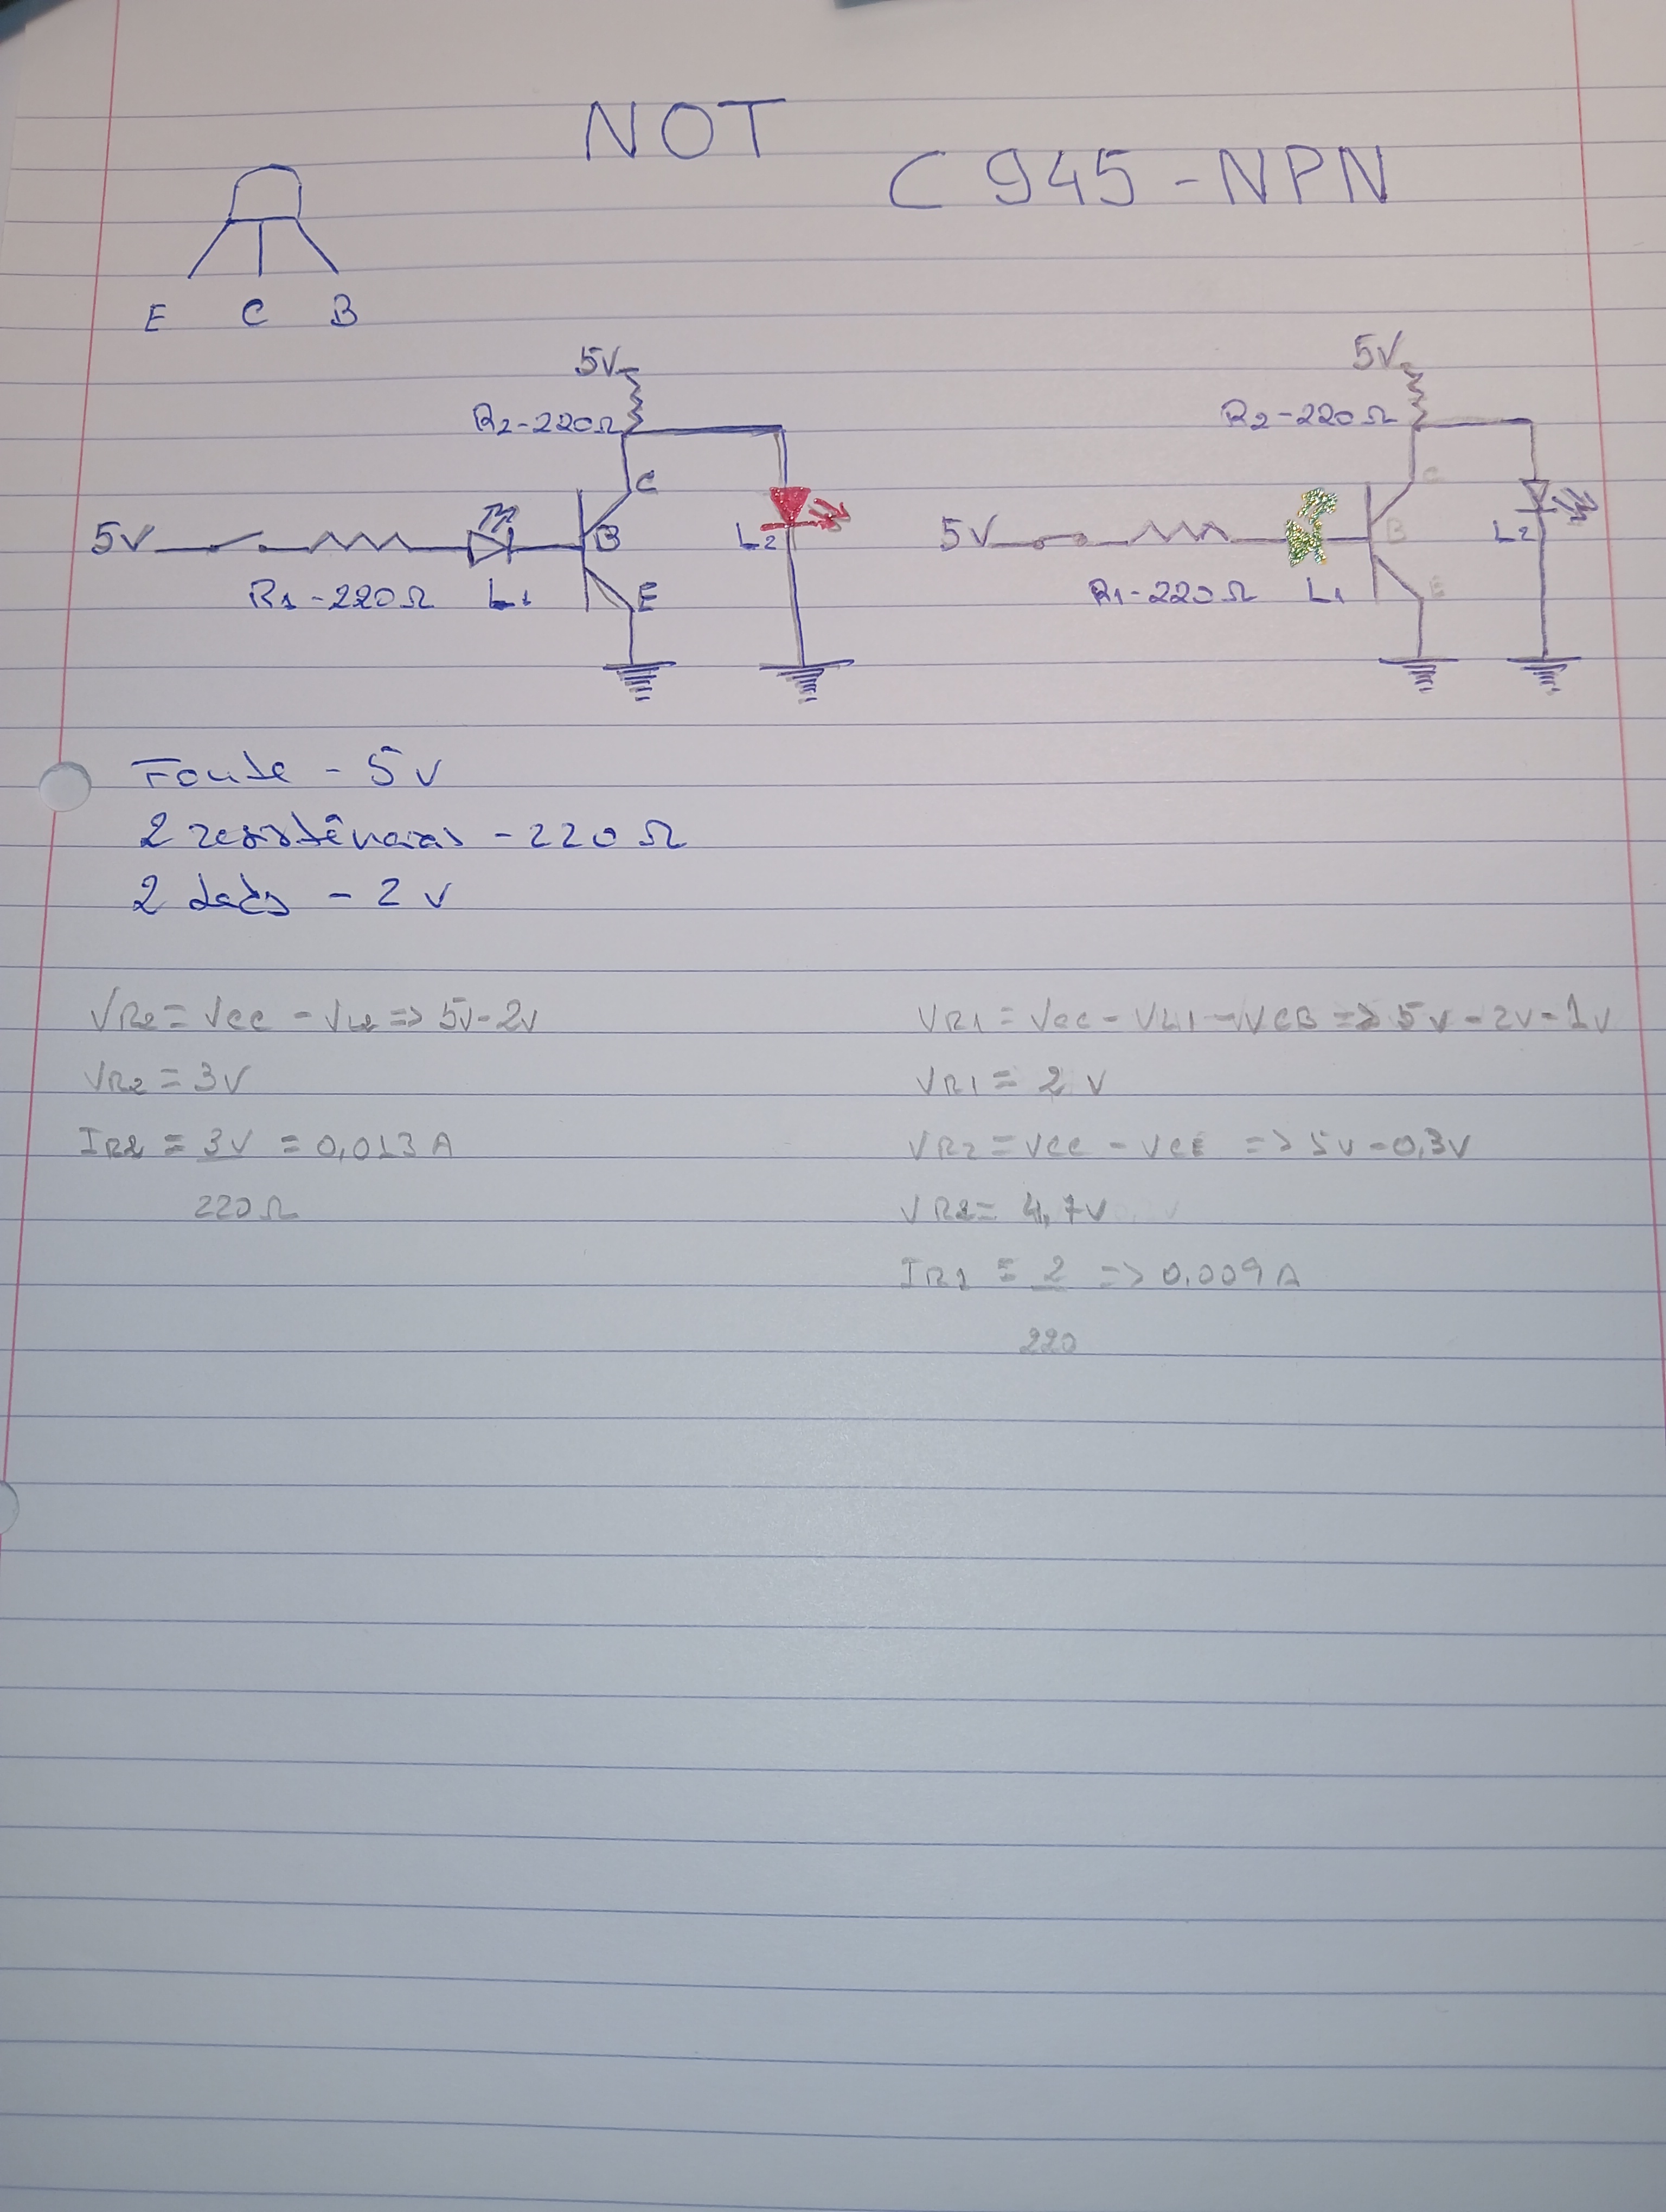 NOT
C945-NPN
E C B
5V
R2-220Ω
C
5V
B
L2
R1-220Ω
L1
E
5V
R2-220Ω
C
5V
B
L2
R1-220Ω
L1
E
Fonte - 5v
2 resistências - 220Ω
2 leds - 2v
VR2 = Vcc - VL2 => 5v-2v
VR2 = 3V
IR2 = 3V = 0,013A
220Ω
VR1 = Vcc - VL1 - VCB => 5v - 2v - 1v
VR1 = 2 V
VR2 = Vcc - VCE => 5v - 0,3v
VR2 = 4,7v
IR1 = 2 => 0,009A
220